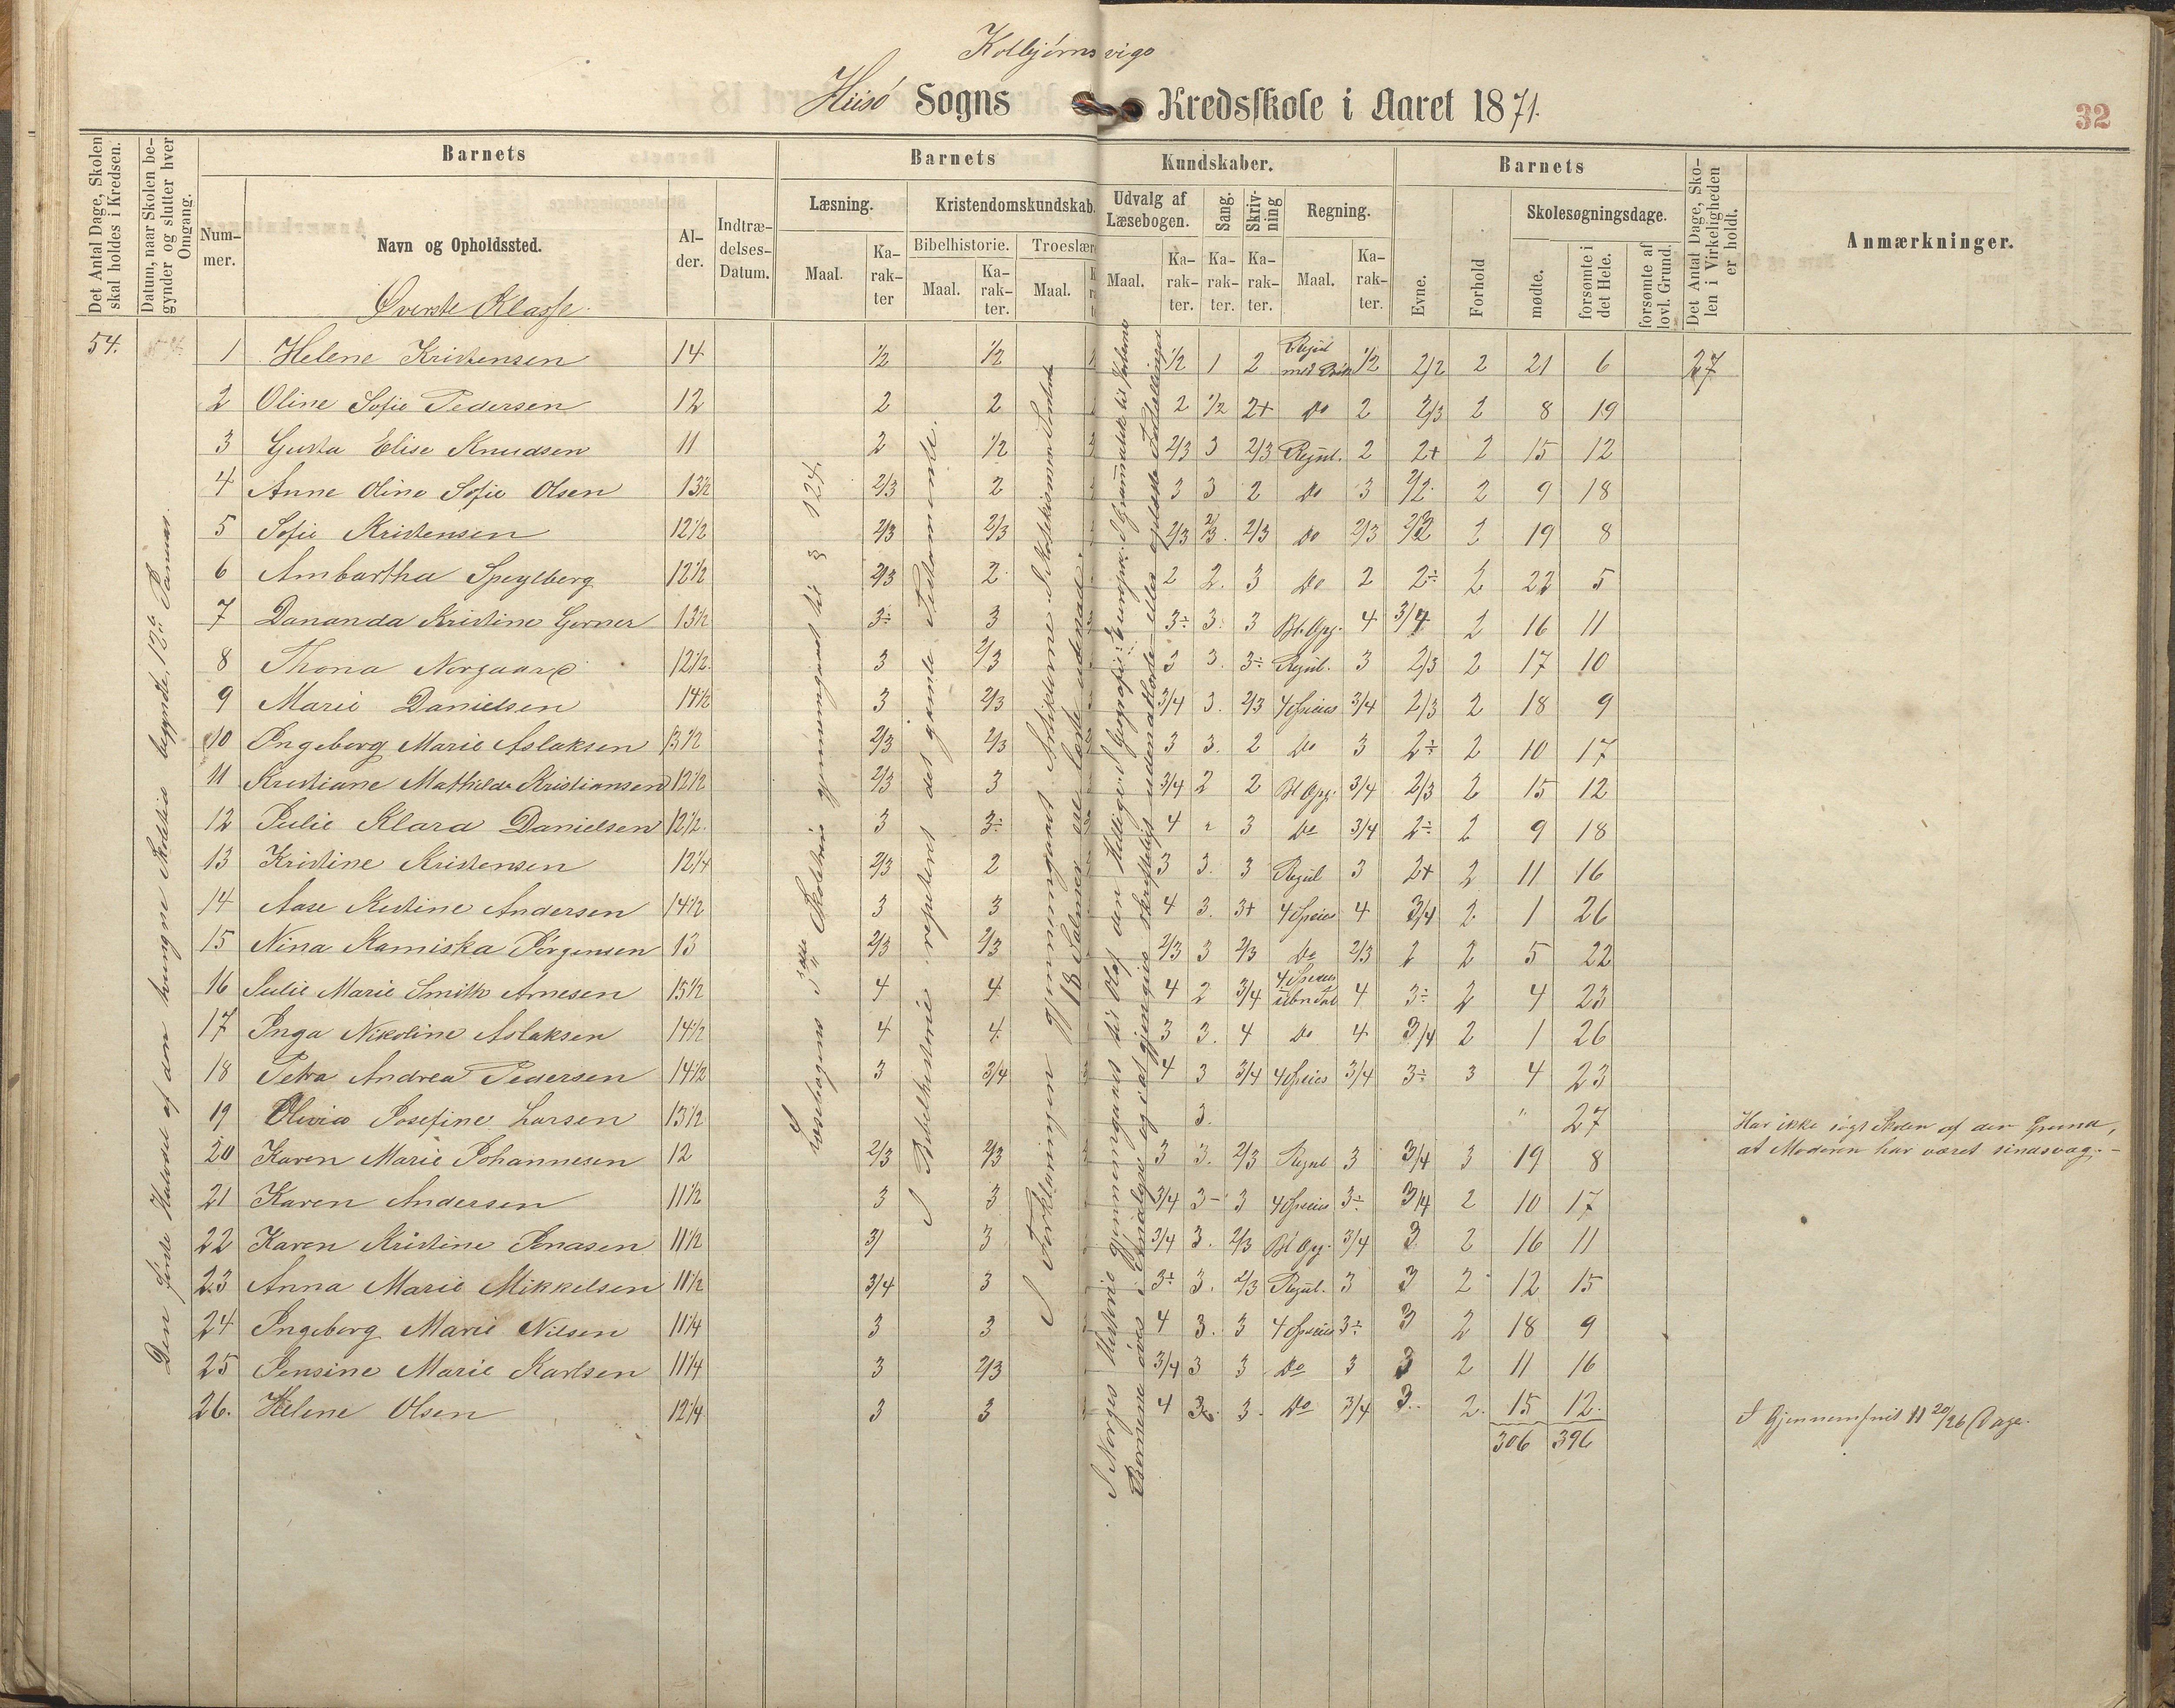 Kolbjørnsvigs
Hisø Sogns Kredsskole i Aaret 1871.
32
Det Antal Dage, Skolen skal holdes i Kredsen.
Datum, naar Skolen begynder og slutter hver Omgang.
Barnets
Barnets Kundskaber.
Barnets
Det Antal Dage, Skolen i Virkeligheden er holdt.
Anmærkninger.
Nummer.
Navn og Opholdssted.
Alder.
Indtrædelses-Datum.
Læsning.
Maal.
Karakter
Kristendomskundskab.
Bibelhistorie.
Maal.
Karakter.
Troeslær
Maal.
Udvalg af Læsebogen.
Maal.
Karakter.
Sang.
Karakter.
Skrivning
Karakter.
Regning.
Maal.
Karakter.
Evne.
Forhold
Skolesøgningsdage.
mødte.
forsømte i det Hele.
forsømte af lovl. Grund.
Øverste Klasse.
54.
1 Helene Kristensen 14 1/2 1/2 1/2 1 2 Regul med Brøk 1/2 2/2 2 21 6 27
2 Oline Sofie Pedersen 12 2 2 2 1/2 2+ Do 2 2/3 2 8 19
3 Gusta Elise Knudsen 11 2 1/2 2/3 3 2/3 Regul. 2 2+ 2 15 12
4 Anne Oline Sofie Olsen 13 1/2 2/3 2 3 3 2 Do 3 2 9 18
5 Sofie Kristensen 12 1/2 2/3 2/3 2/3 2/3. 2/3 Do 2/3 2 19 8
6 Ambartha Speylberg 12 1/2 2/3 2 2 2. 3 Do 2 2÷ 2 22 5
7 Dananda Kristine Gerner 13 1/2 3÷ 3 3÷ 3. 3 Bl. Opg. 4 3/4 2 16 11
8 Thona Norgaard 12 1/2. 3 2/3 3 3. 3÷ Regul. 3 2/3 2 17 10
9 Marie Danielsen 14 1/2 3 2/3 3/4 3. 2/3 4 Species 3/4 2/3 2 18 9
10 Ingeborg Marie Aslaksen 13 1/2 2/3 2/3 3 3. 2 Do 3 2÷ 2 10 17
11 Kristiane Mathilde Kristiansen 12 1/2 2/3 3 3/4 2 2 Bl Opg. 3/4 2/3 2 15 12
12 Julie Klara Danielsen 12 1/2. 3 3÷ 4 " 3 Do 3/4 2÷ 2 9 18
13 Kristine Kristensen 12 1/4 2/3 2 3 3. 3 Regul 3 2+ 2 11 16
14 Aase Kistine Andersen 14 1/2 3 3 4 3. 3+ 4 Species 4 3/4 2 1 26
15 Nina Kamiska Jørgensen 13 2/3 2/3 2/3 3 2/3 Do 2/3 2 2 5 22
16 Julie Marie Smith Arnesen 15 1/2 4 4 4 2 3/4 4 Species ubnævt 4 3÷ 2 4 23
17 Inga Nikoline Aslaksen 14 1/2 4 4. 3 3. 4 Do 4 3/4 2 1 26
18 Petra Andrea Pedersen 14 1/2 3 3/4 4 3 3/4 4 Species 3/4 3÷ 3 4 23
19 Olivia Josefine Larsen 13 1/2 3. " 27 Har ikke søgt Skolen af den Grund,
20 Karen Marie Johannesen 12 2/3 2/3 3 3. 2/3 Regul 3 3/4 3 19 8 at Moderen har været sindssvag.–
21 Karen Andersen 11 1/2 3 3 3/4 3– 3 4 Species 3÷ 3/4 2 10 17
22 Karen Kristine Jonasen 11 1/2 3/ 3 3/4 3. 2/3 Bl Opg. 3/4 3 2 16 11
23 Anna Marie Mikkelsen 11 1/2 3/4 3 3÷ 3. 2/3 Regul. 3 3 2 12 15
24 Ingeborg Marie Nilsen 11 1/4 3 3 4 3. 3 4 Species 3÷ 3 2 18 9
25 Jensine Marie Karlsen 11 1/4 3 2/3 3/4 3 3 Do 3 3 2 11 16
26. Helene Olsen 12 1/4 3 3 4 3. 3. Do 3/4 3.. 2. 15 12. I Gjennemsnit 11 20/26 Dage.
306 396
Den første Halvdel af den tvungne Skoletid begyndte, 12te Januar.
Læsebogens 3die Skoletrin gjennemgaaet til 3 124.
I Bibelhistorie repeteret det gamle Testamente.
I Forklaringen gjennemgaaet Artiklerne I Katekismen
18 Salmer ere lærte udenad.
I Norges Historie gjennemgaaet til Olaf den Hellige. I Geografi: Europa. I
Børnene øves i Sindlyre og i at gjengive skriftligt udenadlærte eller oplæste Fortællinger